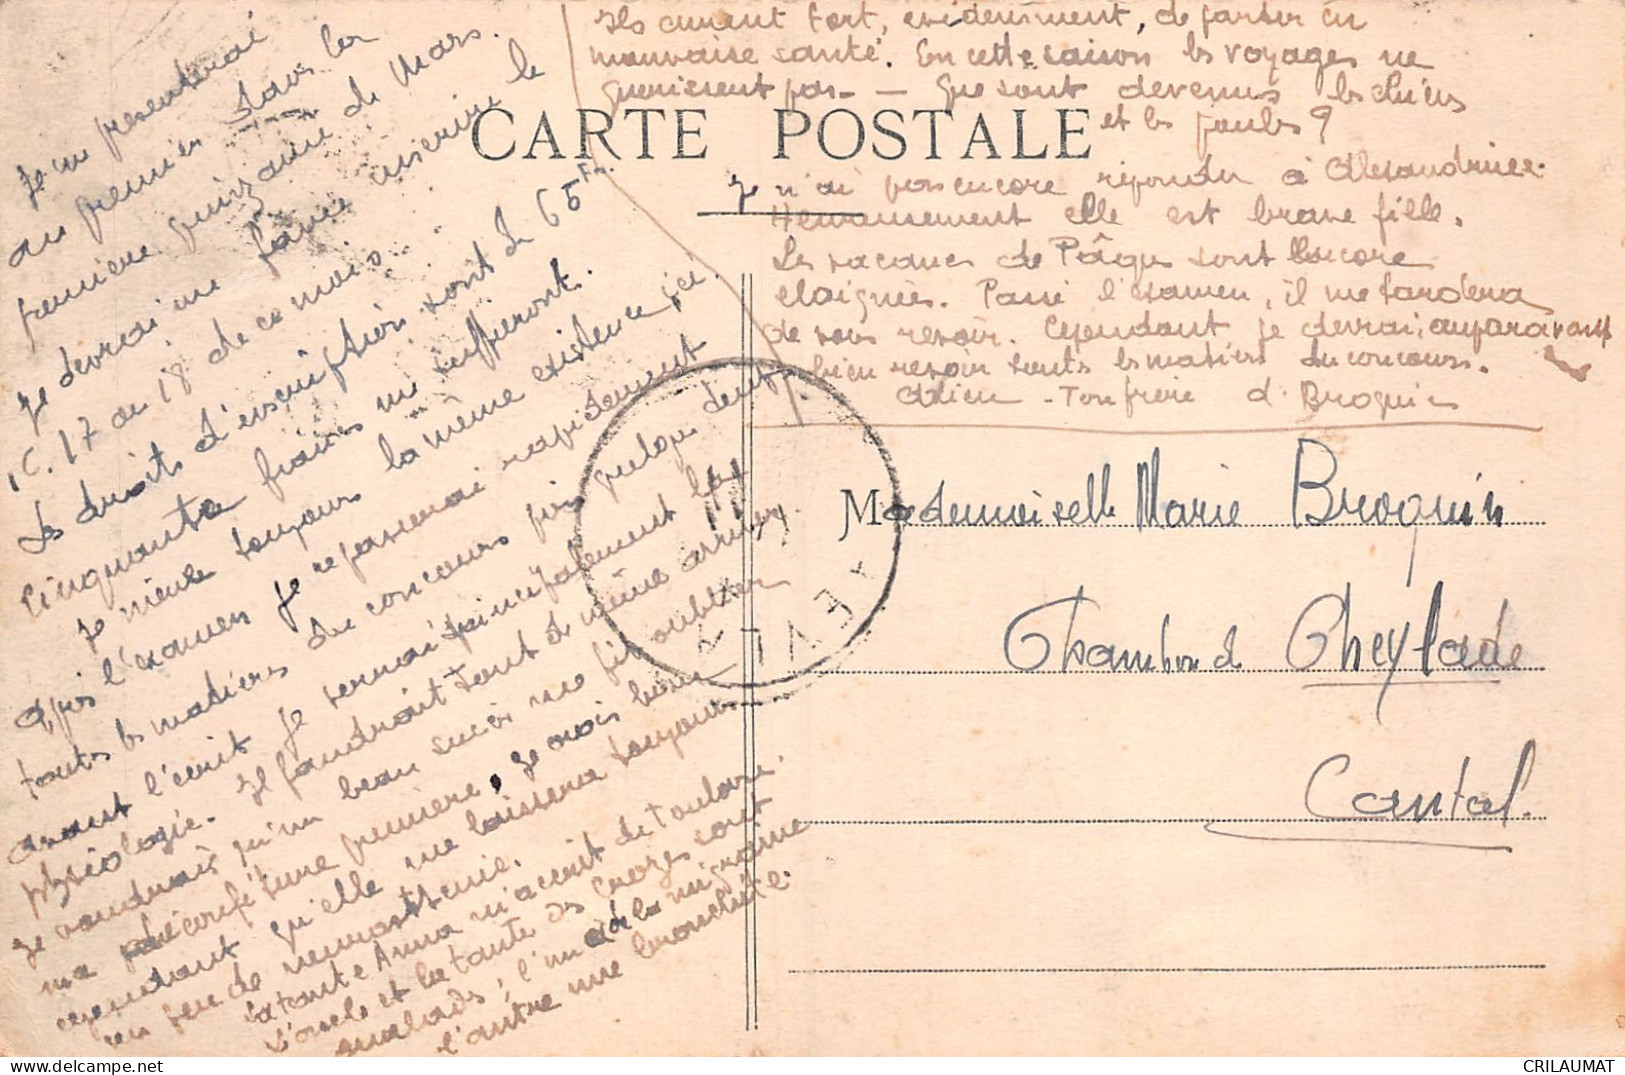 Je me presenterai
au premier dans les
premiere quinzaine de Mars.
Je devrai me faire inscrire le
17 ou 18 de ce mois.
Les droits d'inscription sont de 65 Fr
Cinquante francs me suffiront.
Je mene toujours la même existence ici.
Après l'examen je repasserai rapidement
toutes les matieres du concours puis quelque temps
avant l'ecrit je reverrai principalement la
physiologie. Il faudrait tout de même arriver.
Je voudrais qu'un beau succès me fit oublier
ma première, je crois bien
cependant qu'elle me laissera toujours
un peu de neurasthenie.
La tante Anna m'a ecrit de Toulouse.
L'oncle et la tante des Cuozes sont
malades; l'un de la migraine
l'autre une bronchite.
Ils eurent tort, evidemment, de partir en
mauvaise santé. En cette saison les voyages ne
guerissent pas - — Que sont devenus les chiens
et les poules ?
CARTE POSTALE
Je n'ai pas encore répondu à Alexandrine.
Heureusement elle est brave fille.
Les vacances de Pâques sont encore
eloignées. Passé l'examen, il me tardera
de vous revoir. Cependant je devrai, auparavant
bien revoir toutes les matieres du concours.
Adieu - Ton frère d. Broquin
Mademoiselle Marie Broquin
Chambon de Cheylade
Cantal.
CRILAUMAT